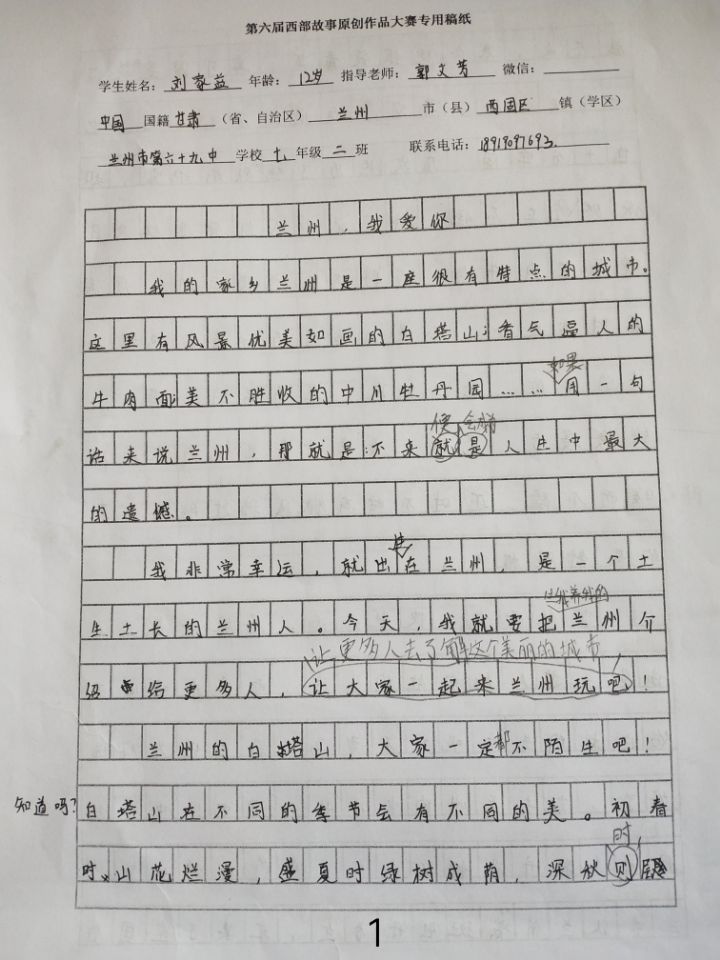 第六届西部故事原创作品大赛专用稿纸
学生姓名：刘家益 年龄：12岁 指导老师：郭文芳 微信：
中国 国籍 甘肃（省、自治区）兰州 市（县）西固区 镇（学区）
兰州市第六十九中 学校 七 年级 二 班 联系电话：18919097693
兰州，我爱你
我的家乡兰州是一座很有特点的城市。
这里有风景优美如画的白塔山；香气逼人的
如果
牛肉面；美不胜收的中川牡丹园……用一句
便 会才
话来说兰州，那就是：不来就是人生中最大
的遗憾。
生
我非常幸运，就出在兰州，是一个土
生我养我的
生土长的兰州人。今天，我就要把兰州介
让更多人去了解这个美丽的城市
绍给更多人，让大家一起来兰州玩吧！
兰州的白塔山，大家一定都不陌生吧！
知道吗？白塔山在不同的季节会有不同的美。初春
时，
时，山花烂漫，盛夏时绿树成荫，深秋则
1